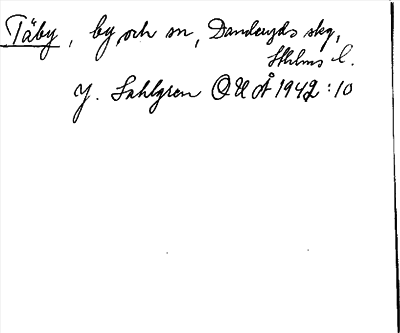 Täby, by och sn, Danderyds skg,
Sthlms l.
J. Sahlgren OUÅ 1942:10